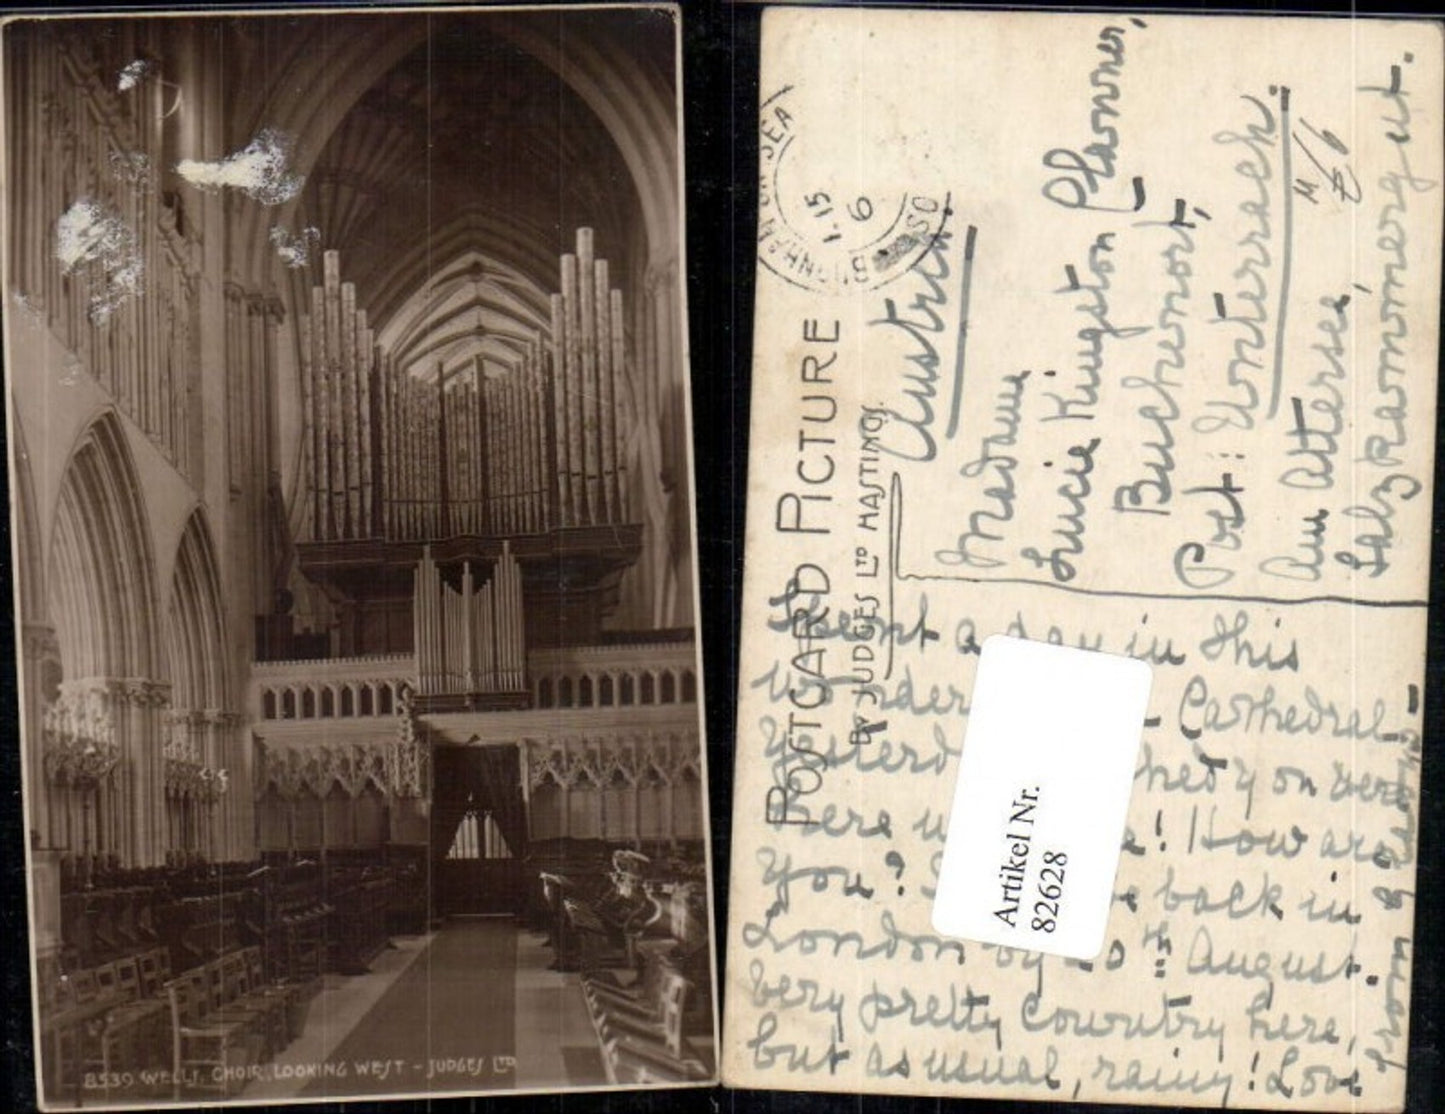 8539 WELLS, CHOIR, LOOKING WEST - JUDGES LTD
POSTCARD PICTURE
BY JUDGES LTD HASTINGS.
BURNHAM ON SEA
1.15
6
SO
Austria.
Madame
Lucie Kingston
Buchenort,
Post: Unterrach.
Am Attersee,
Salzkammergut.
Spent a day in this
Cathedral
here
on
! How are
You?
back in
London by
0th August.
Very pretty country here,
but as usual, rainy! Love
from
Artikel Nr.
82628